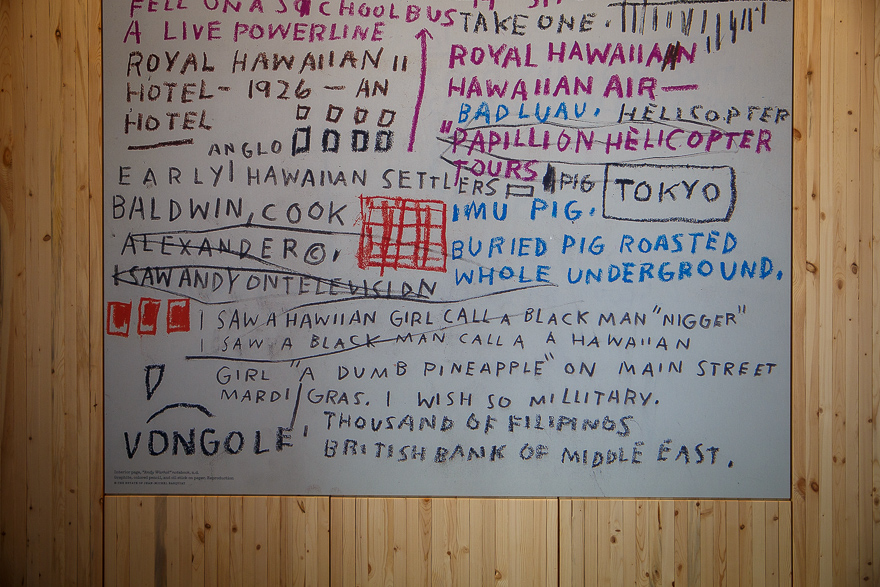 FELL ON A SCHOOLBUS
A LIVE POWERLINE
ROYAL HAWAIIAN II
HOTEL- 1926 — AN
HOTEL
ANGLO
TAKE ONE.
ROYAL HAWAIIAN
HAWAIIAN AIR—
BAD LUAU. HELICOPTER
"PAPILLION HELICOPTER
TOURS
EARLY HAWAIIAN SETTLERS
PIG
TOKYO
BALDWIN, COOK
IMU PIG.
ALEXANDER©.
BURIED PIG ROASTED
I SAW ANDY ON TELEVISION
WHOLE UNDERGROUND.
I SAW A HAWIIAN GIRL CALL A BLACK MAN "NIGGER"
I SAW A BLACK MAN CALL A A HAWAIIAN
GIRL "A DUMB PINEAPPLE" ON MAIN STREET
MARDI GRAS. I WISH SO MILLITARY.
VONGOLE'
THOUSAND OF FILIPINOS
BRITISH BANK OF MIDDLE EAST.